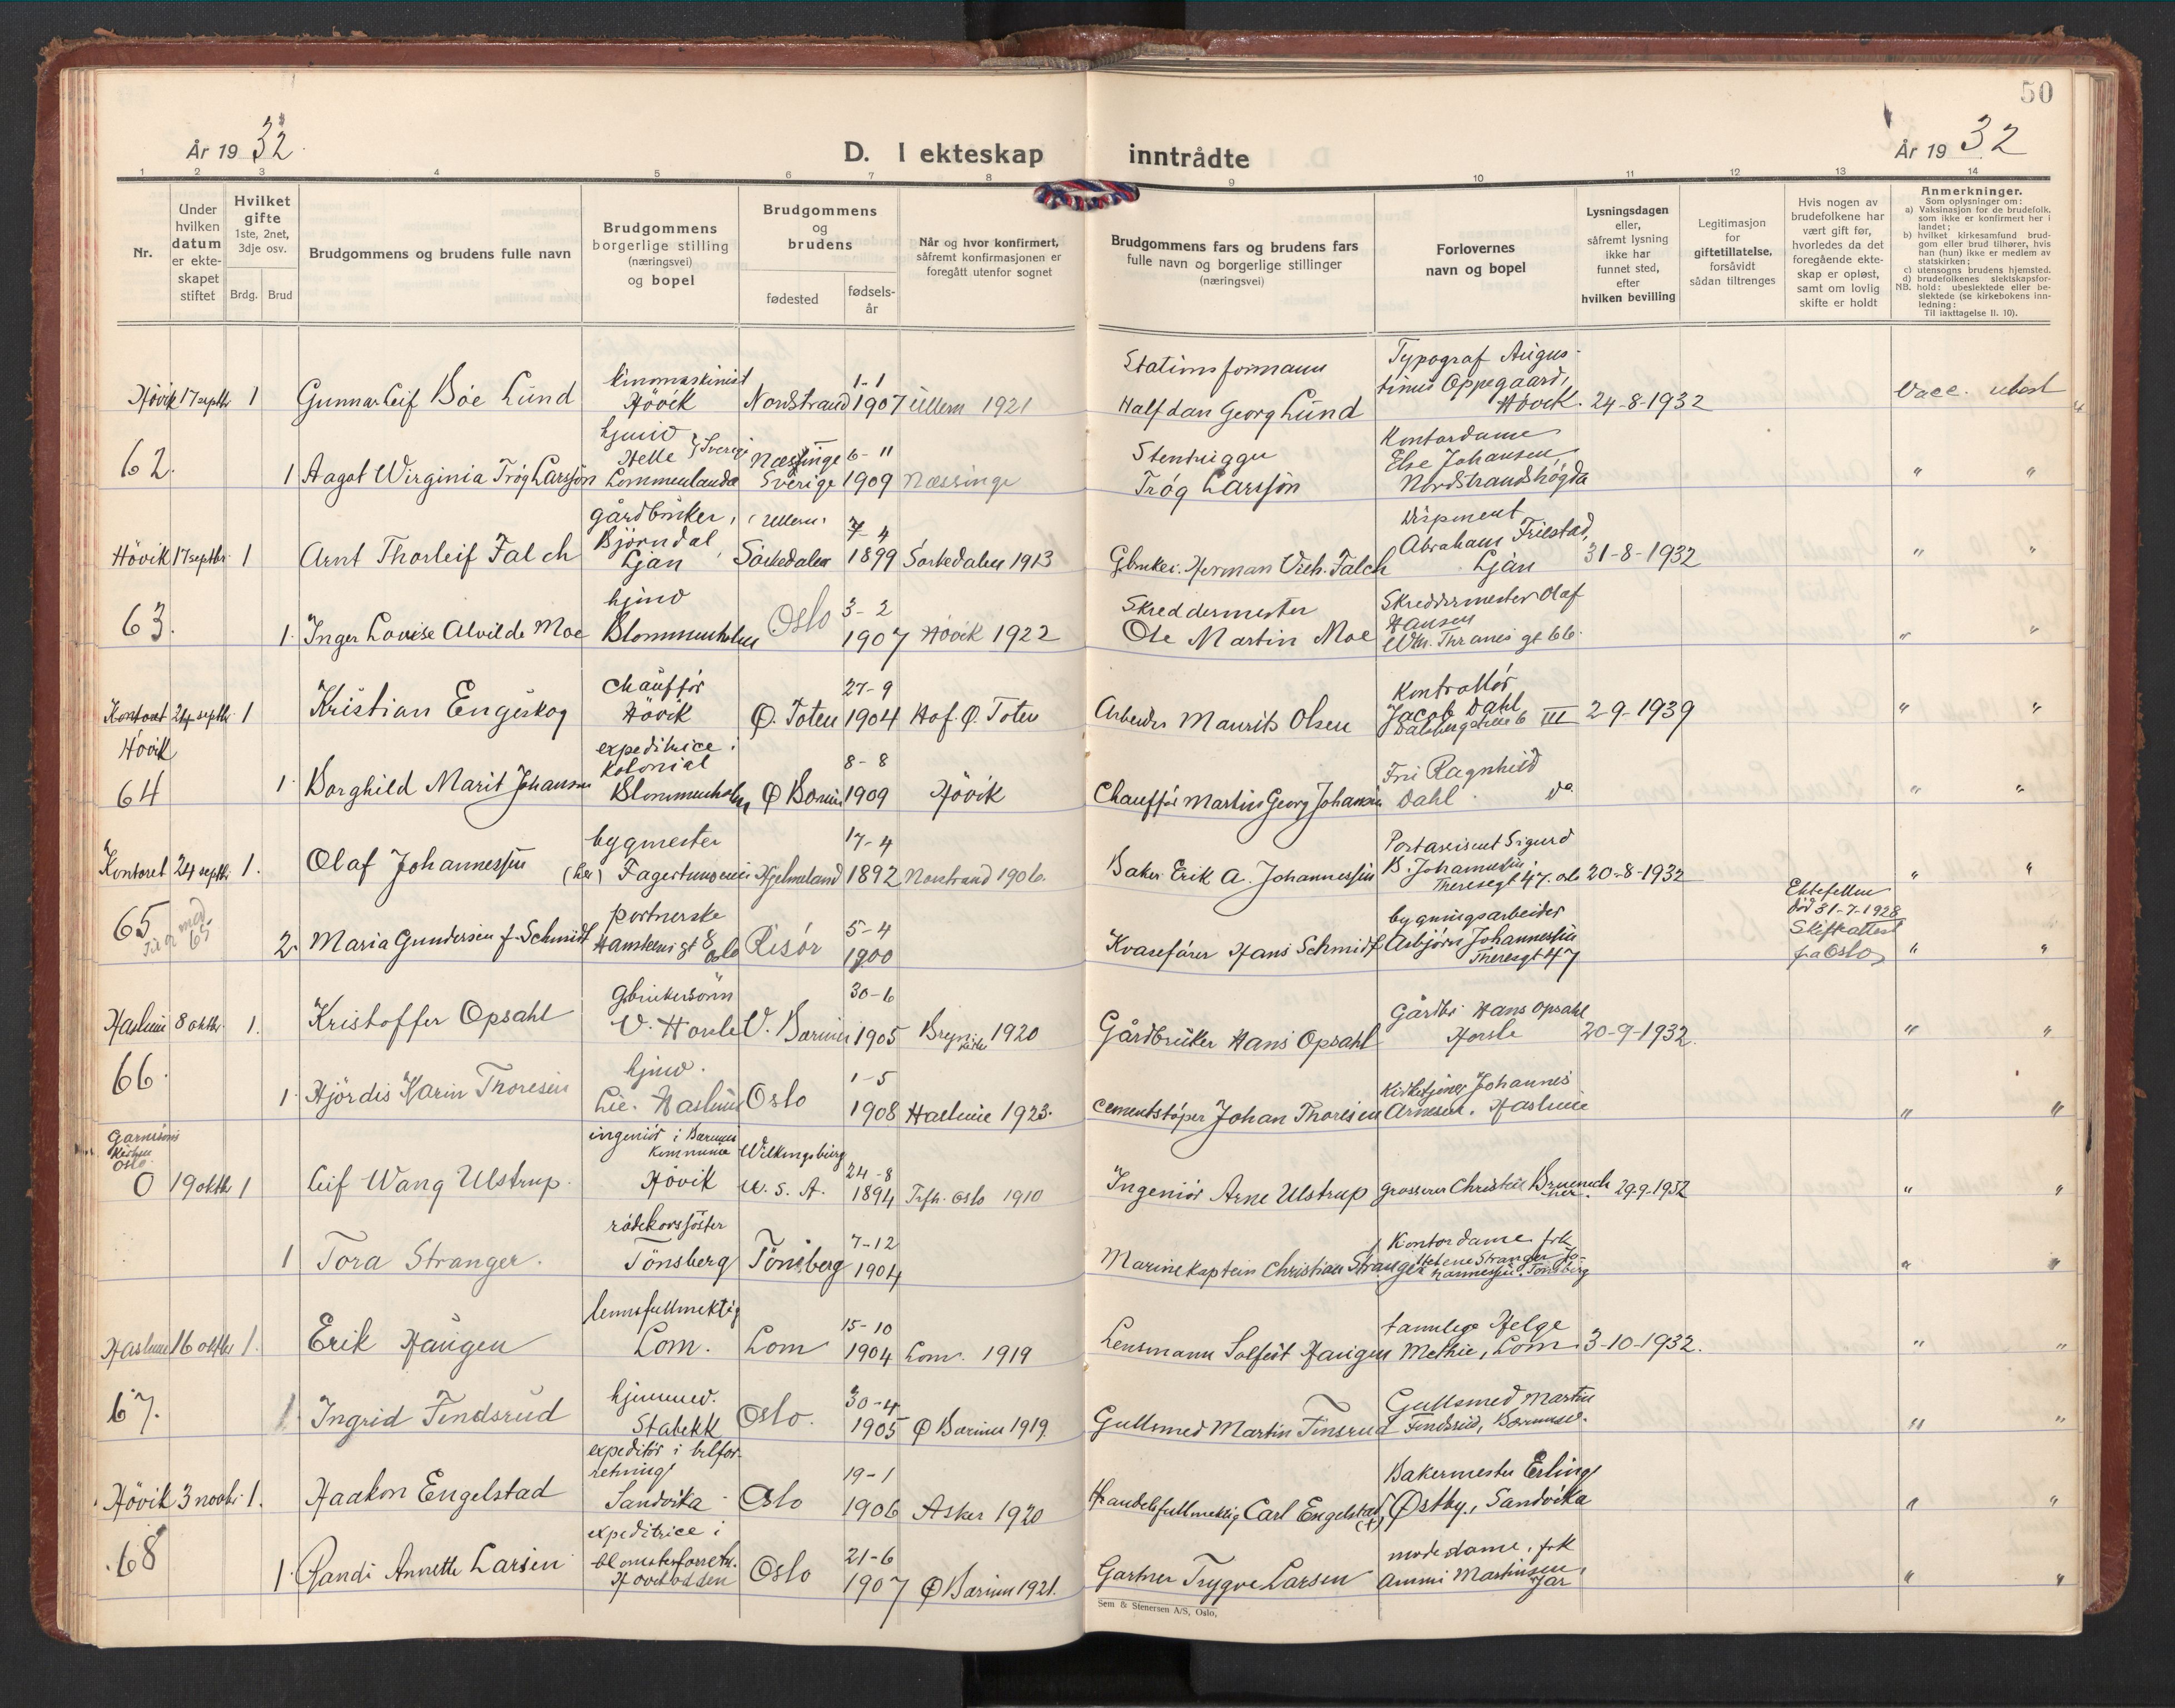 50
År 1932.
D. I ekteskap inntrådte
År 1932
1 2 3 4 5 6 7 8 9 10 11 12 13 14
Nr.
Under hvilken datum er ekteskapet stiftet
Hvilket gifte 1ste, 2net, 3dje osv.
Brdg. Brud
Brudgommens og brudens fulle navn
Brudgommens borgerlige stilling (næringsvei) og bopel
Brudgommens og brudens
fødested
fødsels-år
Når og hvor konfirmert, såfremt konfirmasjonen er foregått utenfor sognet
Brudgommens fars og brudens fars fulle navn og borgerlige stillinger (næringsvei)
Forlovernes navn og bopel
Lysningsdagen eller, såfremt lysning ikke har funnet sted, efter hvilken bevilling
Legitimasjon for giftetillatelse, forsåvidt sådan tiltrenges
Hvis nogen av brudefolkene har vært gift før, hvorledes da det foregående ekteskap er opløst, samt om lovlig skifte er holdt
Anmerkninger.
Som oplysninger om:
a) Vaksinasjon for de brudefolk, som ikke er konfirmert her i landet;
b) hvilket kirkesamfund brudgom eller brud tilhører, hvis han (hun) ikke er medlem av statskirken;
c) utensogns brudens hjemsted.
d) brudefolkenes slektskapsforhold: ubeslektede eller beslektede (se kirkebokens innledning:
NB.
Til iakttagelse II. 10).
Hövik 17 septbr 1 Gunnar Leif Böe Lund
Hövik Nordstrand 1-1 1907 Ullern 1921
Stationsformann Halfdan Georg Lund
Typograf Augustinus Oppegaard, Hövik. 24-8-1932
Vacc. ubesl
62. 1 Aagot Wirginia Trög Larssön
hjmv Helle Lommelanda Sverige
Næsinge Sverige 6-11 1909 Næssinge
Trög Larssön
Kontordame Else Johansen, Nordstrandshögda " "
Hövik 17 septbr. 1 Arnt Thorleif Falch
gårdbruker, Björndal, Ljan
(Ullern) Sörkedalen 7-4 1899 Sörkedalen 1913
Gbruker. Herman Falch
Disponent Abraham Ljan 31-8-1932 " "
63. 1. Inger Lovise Alvilde Moe
hjmv Blommenholm Oslo 3-2 1907 Hövik 1922
Skreddermester Ole Martin Moe
Skreddermester Olaf Hansen Wm. Thranes gt 66. " "
Kontoret Hövik 24 septbr. 1 Kristian Engeskog
Chaufför Hövik Ø. Toten 27-9 1904 Hof. Ø. Toten
Arbeider Maurits Olsen
Kontrollör Jacob Dahl III 2-9-1939 " "
64 1. Borghild Marit Johansen
expeditrice i Kolonial Blommenholm
Ø Bærum 8-8 1909 Hövik
Chaufför Martin Georg Johansen
Fru Ragnhild Dahl do " "
Kontoret 24 septbr. 1. Olaf Johannessen
bygmester Hjelmeland 17-4 1892 1906.
Baker Erik A. Johannessen
Postassistent Sigurd B. Johannessen Theresegt 47. Oslo 20-8-1932 " "
65 2. Maria Gundersen f. Schmidt
portnerske gt 8 Oslo Risör 5-4 1900
Hans Schmidt
bygningsarbeider Asbjörn Johannessen Theresgt 47
Ektefellen död 31-7-1928 Skifteattest fra Oslo " "
Haslum 8 oktbr. 1. Kristoffer Opsahl
Gbrukersönn V. Hosle V. Bærum 30-6 1905 Bryn kirke 1920
Gårdbruker Hans Opsahl
Gårdbr Hans Opsahl Hosle 20-9-1932. " "
66. 1. Hjördis Karin Thoresen
hjmv. Lie. Haslum Oslo 1-5 1908 Haslum 1923.
Cementstöper Johan Thoresen
Kirketjener Johannes Arnesen. Haslum " "
Garnisons Kirken Oslo
0 19 oktbr 1 Leif Wang Ulstrup.
ingeniör i Bærums Kommune Hövik
Wilkingsburg U.S.A. 24-8 1894 Trefh. Oslo 1910
Ingeniör Arne Ulstrup
grosserer Christian 29-9-1932 " "
1 Tora Stranger.
rödekorssöster Tönsberg Tönsberg 7-12 1904
Marinekaptein Christian Stranger
Kontordame frk Helene Stranger Johannessen. Tönsberg " "
Haslum 16 oktbr 1. Erik Haugen
lensfullmektig Lom. Lom 15-10 1904 Lom. 1919
Lensmann Solfest Haugen
tannlege Helge Methie, Lom. 3-10-1932. " "
67. 1. Ingrid Findsrud
hjemmev. Stabekk Oslo. 30-4 1905 Ø Bærum 1919.
Gullsmed Martin Finsrud
Gullsmed Martin Findsrud, " "
Hövik 3 novbr. 1. Haakon Engelstad
expeditör i bilforretning Sandvika Oslo 19-1 1906 Asker 1920
Handelsfullmektig Carl Engelstad (+)
Bakermester Erling Østby., Sandvika " "
68 1. Randi Annette Larsen
expeditrice i blomsterforretn. Höveodden Oslo 21-6 1907 Ø Bærum 1921.
Gartner Trygve Larsen
modedame, frk Ammi Martinsen, Jar " "
Sem & Stenersen A/S, Oslo,